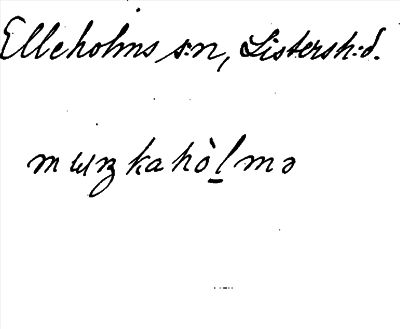 Elleholms s:n, Listersh:d.
mɯŋkahòl̲mə